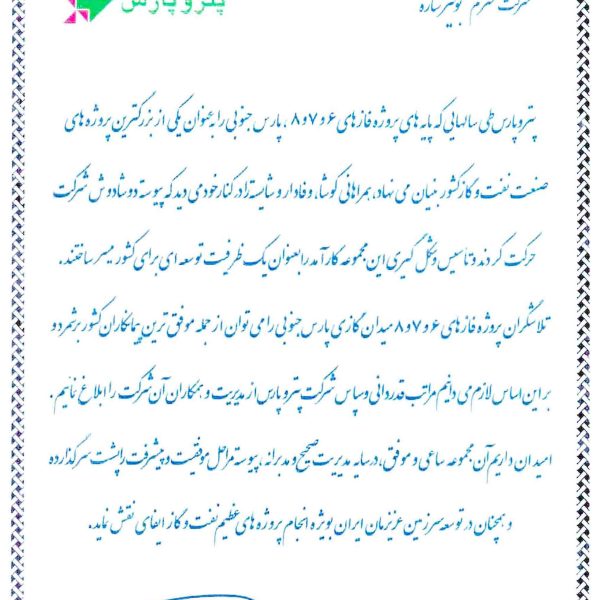 پتروپارس
شرکت محترم
پتروپارس طی سالهایی که پایه های پروژه فازهای ۶ و ۷ و ۸ ، پارس جنوبی را به عنوان یکی از بزرگترین پروژه های
صنعت نفت و گاز کشور بنیان می نهاد، همراهانی کوشا، وفادار و شایسته را در کنار خود می دید که پیوسته دوشادوش شرکت
حرکت کردند و تأسیس و شکل گیری این مجموعه کارآمد را بعنوان یک ظرفیت توسعه ای برای کشور میسر ساختند.
تلاشگران پروژه فازهای ۶ و ۷ و ۸ میدان گازی پارس جنوبی را می توان از جمله موفق ترین پیمانکاران کشور برشمرد و
بر این اساس لازم می دانیم مراتب قدردانی و سپاس شرکت پتروپارس از مدیریت و همکاران آن شرکت را ابلاغ نمائیم .
امید ان داریم آن مجموعه ساعی و موفق، در سایه مدیریت صحیح و مدبرانه ، پیوسته مراحل موفقیت و پیشرفت را پشت سر گذارده
و همچنان در توسعه سرزمین عزیزمان ایران بویژه انجام پروژه های عظیم نفت و گاز ایفای نقش نماید.